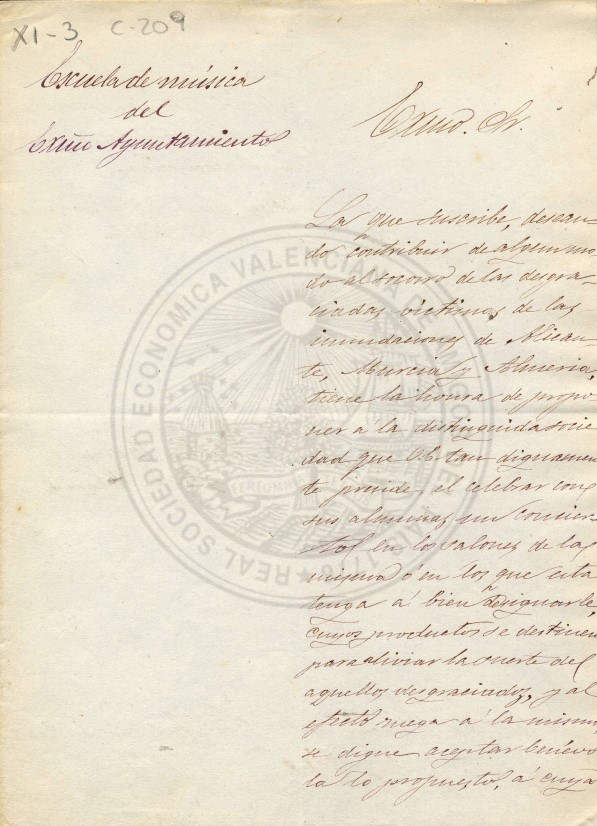 XI-3 C-209
Escuela de música
del
Exmo Ayuntamiento
Exmo. Sr.
La que suscribe, desean-
do contribuir de algun mo
do al socorro de las desgra-
ciadas víctimas de las
inundaciones de Alican-
te, Murcia y Almeria,
tiene la honra de propo
ner á la distinguida socie
dad que VE. tan dignamen
te preside, el celebrar con
sus alumnas un concier-
to en los salones de la
misma ó en los que esta
tenga á bien designarle,
cuyos productos se destinen
para aliviar la suerte de
aquellos desgraciados, y al
efecto ruega á la misma,
se digne aceptar benévo
la lo propuesto, á cuya
REAL SOCIEDAD ECONOMICA VALENCIANA DE AMIGOS DEL PAIS 1776